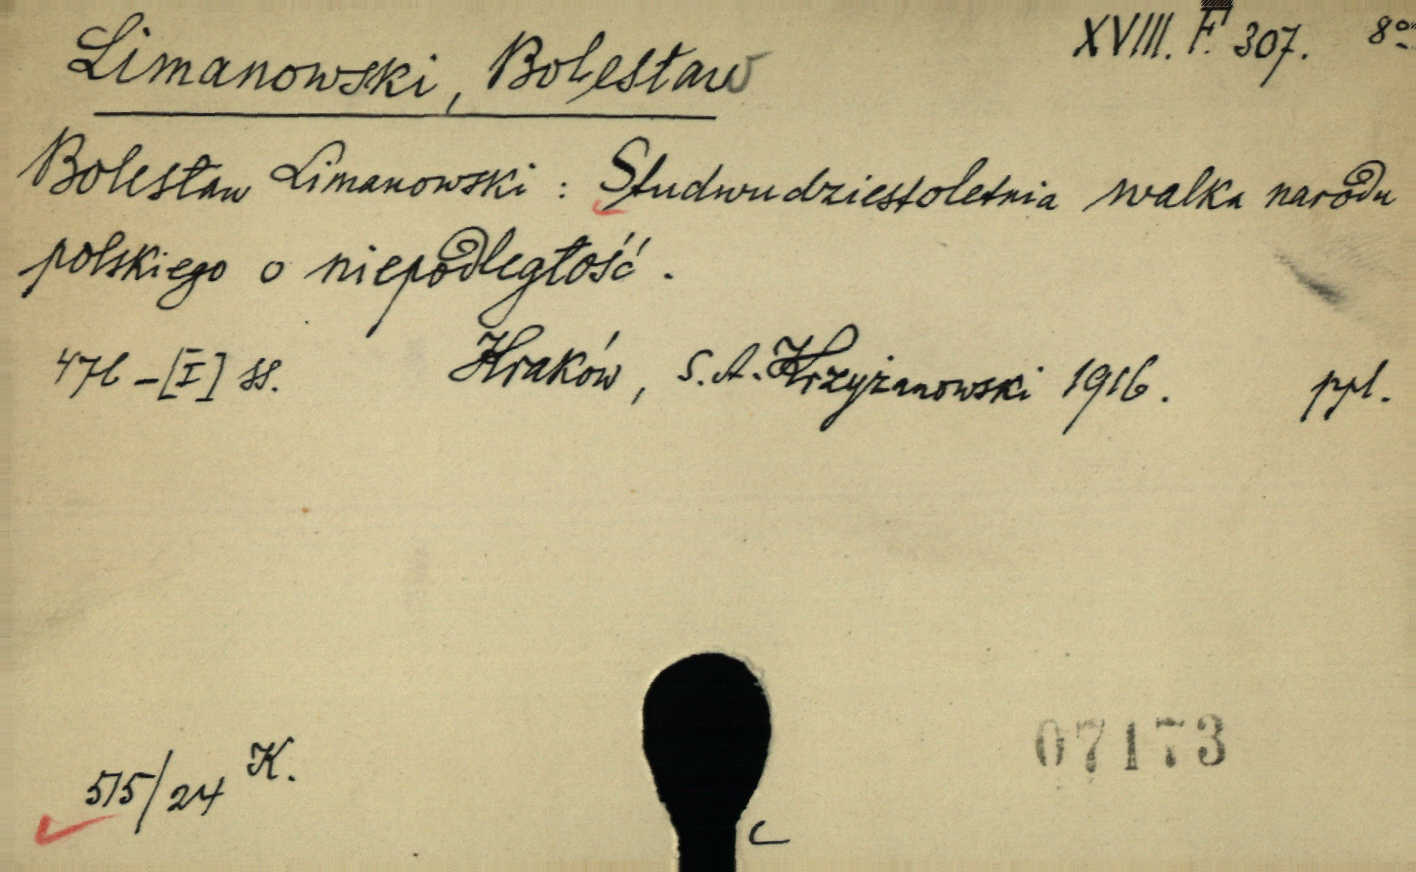 XVIII. F. 307. 8°
Limanowski, Bolesław
Bolesław Limanowski : Studwudziestoletnia walka narodu
polskiego o niepodległość.
471 – [I] ss. Kraków, S. A. Krzyżanowski 1916. ppl.
515/24 K.
07173
C